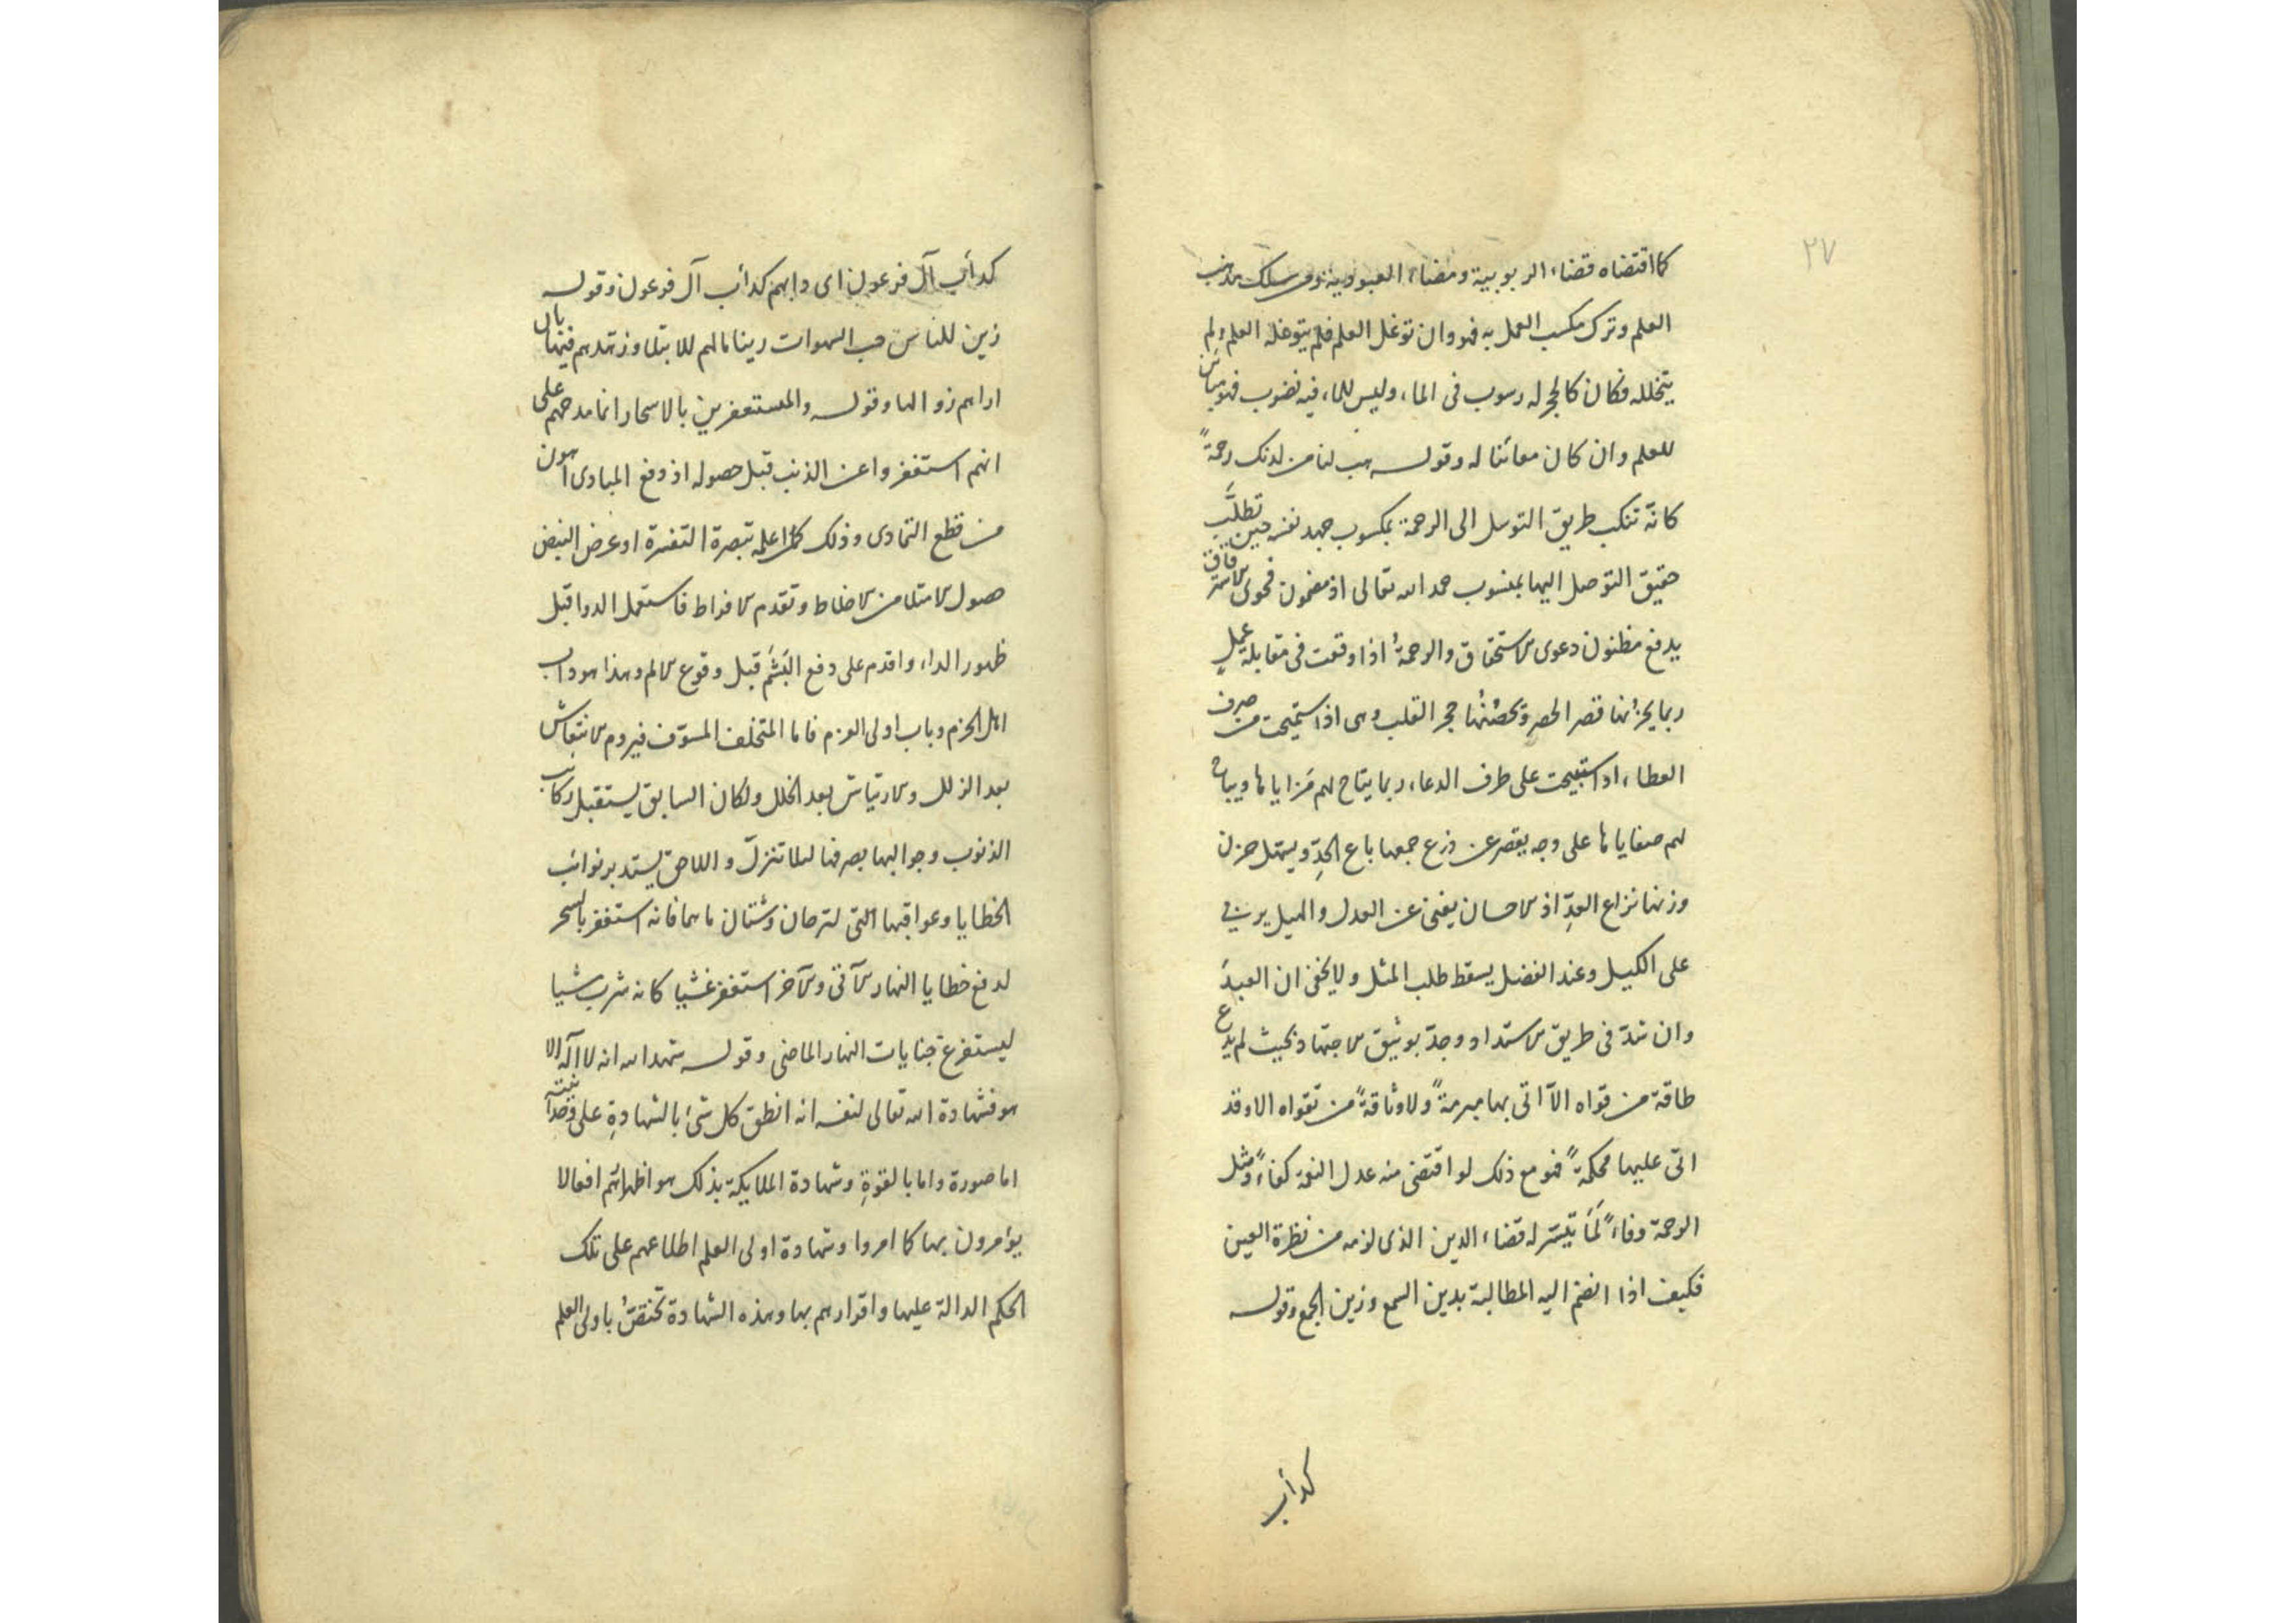 ٢٧
كما اقتضاه قضاء الربوبية ومضاء العبودية ومن سلك مذهب
العلم وترك مكسب العمل به فهو وان توغل العلم فلم يتوغله العلم ولم
يتخلله فكان كالحجر له رسوب فى الماء وليس للماء فيه نضوب فهو مباين
للعلم وان كان معاينا له وقوله هب لنا من لدنك رحمةً
كانّه تنكب طريق التوسل الى الرحمة بمكسوب جهد نفسه حين تطلَّب
حقيق التوصل اليها بمنسوب حمد الله تعالى اذ مضمون فحوى
يدفع مظنون دعوى الاستحقاق والرحمةُ اذا وقعت فى مقابلة عملٍ
ربما يحزنها قصر الحصر وتحصنُها حجر القلب وهى اذا استميحت من صرف
العطاء او استبيحت على طرف الدعاء ربما يتاح لهم مَزاياها ويباح
لهم صفاياها على وجه يقصر عن ذرع جمعها باع الحدِّ ويسهل حزن
وزنها نزاع العدِّ اذ الاحسان يغنى عن العدل والميل يربى
على الكيل وعند الفضل يسقط طلب المثل ولا يخفى ان العبدَ
وان شدّ فى طريق الاستداد ووجدّ بوثيق الاجتهاد بحيث لم يدع
طاقة من قواه الاّ اتى بها مبرمةً ولا وثاقةً من تقواه الا وقد
اتى عليها محكمةً فهو مع ذلك لو اقتضى منه عدل النعمة كفاءً ومثل
الرحمة وفاءً لَمَا تيسّر له قضاء الدين الذى لزمه من نظرة العين
فكيف اذا انضم اليه المطالبة بدين السمع وزين الجمع وقوله
كدأب
كدأب آل فرعون اى دابهم كدأب آل فرعون وقوله
زين للناس حب الشهوات زينا مالهم للابتلا وزهدهم فيها بان
اراهم زوالها وقوله والمستغفرين بالاسحار انما مدحهم على
انهم استغفروا عن الذنب قبل حصوله اذ دفع المبادى اهون
من قطع التمادى وذلك كمن اعلمه تبصرة التفسرة او عرض النبض
حصول الامتلا من الاخلاط وتقدم الافراط فاستعمل الدوا قبل
ظهور الداء واقدم على دفع البَشَم قبل وقوع الالم وهذا هو داب
اهل الحزم وباب اولى العزم فاما المتخلف المسوّف فيروم الانتعاش
بعد الزلل والارتياش بعد الخلل ولكان السابق يستقبل ركائب
الذنوب وجوالبها بصرفها لئلا تنزل واللاحق يستدبر نوائب
الخطايا وعواقبها التى لترحان وشتان ماهما فانه استغفر بالسحر
لدفع خطايا النهار الآتى والآخر استغفر غشيا كانه شرب شيا
ليستفرغ جنايات النهار الماضى وقوله شهد الله انه لا اله الا
هو فشهادة الله تعالى لنفسه انه انطق كل شئ بالشهادةِ على وحدانيته
اما صورة واما بالقوةِ وشهادة الملايكة بذلك هو اظهارهُم افعالا
يؤمرون بها كما امروا وشهادة اولى العلم اطلاعهم على تلك
الحكم الدالة عليها واقرارهم بها وهذه الشهادة تختصّ باولى العلم